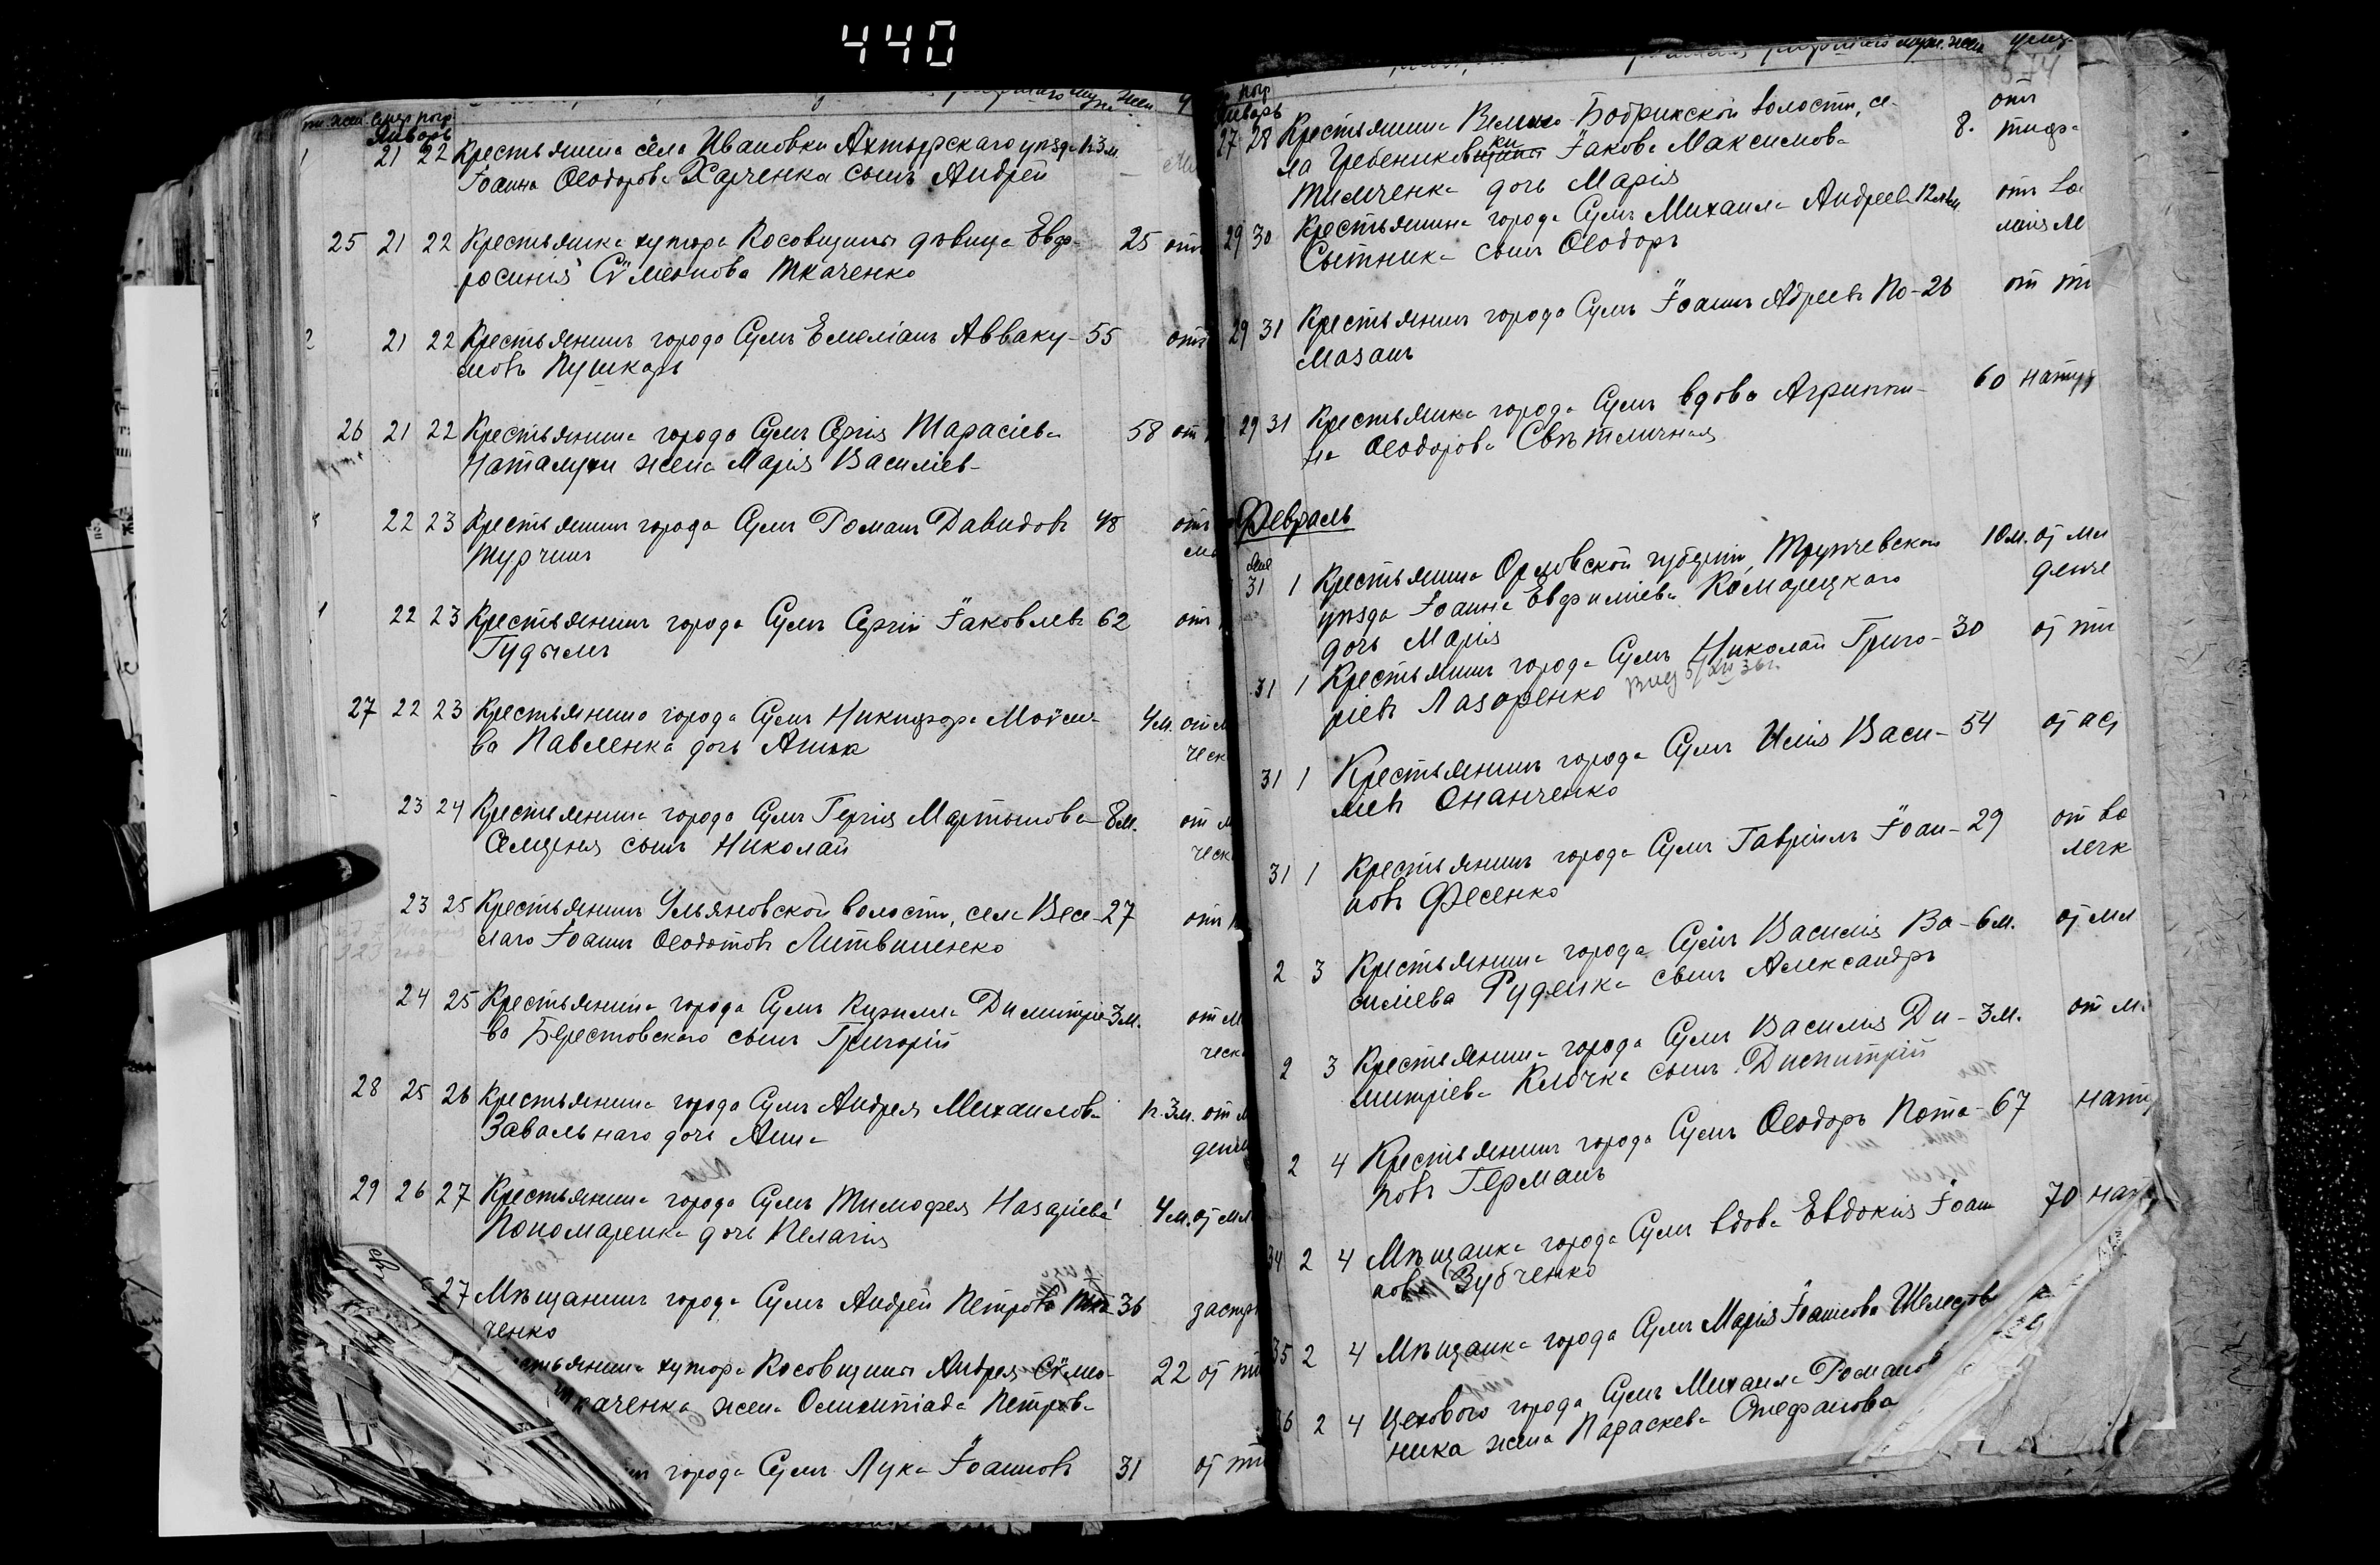 440
муж. жен. смер. погр.
Январь
21 22 Крестьянина села Ивановки Ахтырскаго уѣзда п. 3 м.
Іоанна Ѳеодорова Харченка сынъ Андрей
25 21 22 Крестьянка хутора Косовщины дѣвица Евф- 25 отъ
росинія Сѵмеонова Ткаченко
2 21 22 Крестьянинъ города Сумъ Емеліанъ Авваку- 55 отъ
мовъ Пушкарь
26 21 22 Крестьянина города Сумъ Сергія Тарасіева 58 от
Наталухи жена Марія Василіев-
22 23 Крестьянинъ города Сумъ Романъ Давидовъ 48 отъ
Турчинъ
22 23 Крестьянинъ города Сумъ Сергій Іаковлевъ 62 отъ
Гудымъ
27 22 23 Крестьянина города Сумъ Никифора Моѵсее- 4 м. от м
ва Павленка дочь Анна ческ
23 24 Крестьянина города Сумъ Сергія Мартынова 8 м. от м
Семценя сынъ Николай ческ
23 25 Крестьянинъ Ульяновской волости, села Весе- 27 отъ
лаго Іоаннъ Ѳеодотовъ Литвиненко
24 25 Крестьянина города Сумъ Кирилла Димитріе- 3 м. от м
ва Берестовскаго сынъ Григорій ческ
28 25 26 Крестьянина города Сумъ Андрея Михаилова п. 3 м. от м
Завальнаго дочь Анна
29 26 27 Крестьянина города Сумъ Тимофея Назаріева 4 м. от мл
Пономаренка дочь Пелагія
27 Мѣщанинъ города Сумъ Андрей Петровъ Тка- 36 застр
ченко
стьянина хутора Косовщины Андрея Сѵмео- 22 от ти
каченка жена Олимпіада Петров-
города Сумъ Лука Іоанновъ 31 от ти
муж. жен.
574
погр
Январь
27 28 Крестьянина Велико-Бобрикской волости, се- 8. отъ
ла Гребениковки Іакова Максимова тифа
Тимченка дочь Марія
29 30 Крестьянина города Сумъ Михаила Андреева 12 отъ во
Сытника сынъ Ѳеодоръ
29 31 Крестьянинъ города Сумъ Іоаннъ Адреевъ По- 26 от ти
мазанъ
29 31 Крестьянка города Сумъ вдова Агриппи- 60 натур
на Ѳеодорова Свѣтличная
Февраль
31 1 Крестьянина Орловской губерніи, Трупчевскаго 10 м. от мл
уѣзда Іоанна Евфиміева Комарицкаго
дочь Марія
31 1 Крестьянинъ города Сумъ Николай Григо- 30 от ти
ріевъ Лазоренко
31 1 Крестьянинъ города Сумъ Илія Васи- 54 от ас
ліевъ Онанченко
31 1 Крестьянинъ города Сумъ Гавріилъ Іоан- 29 от во
новъ Фесенко легк
2 3 Крестьянина города Сумъ Василія Ва- 6 м. от мл
силіева Руденка сынъ Александръ
2 3 Крестьянина города Сумъ Василія Ди- 3 м. от м.
митріева Клочка сынъ Димитрій
2 4 Крестьянинъ города Сумъ Ѳеодоръ Пота- 67 нату
повъ Германъ
34 2 4 Мѣщанка города Сумъ вдова Евдокія Іоан- 70 нат
нова Зубченко
35 2 4 Мѣщанка города Сумъ Марія Іоаннова Шелестов
36 2 4 Цеховаго города Сумъ Михаила Романов
ника жена Параскева Стефанова